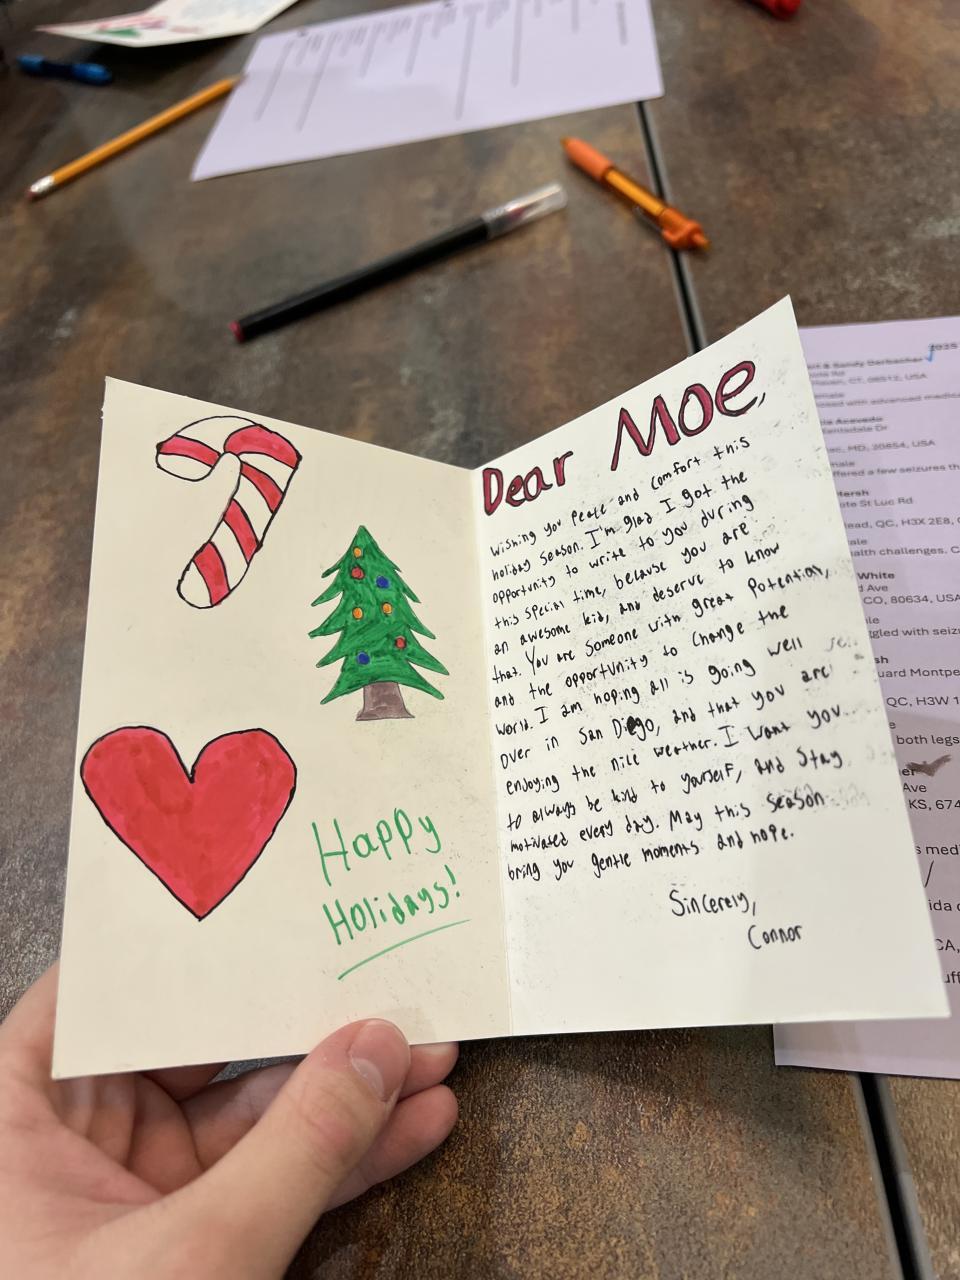 Happy
Holidays!
Dear MOE,
Wishing you peace and comfort this
holiday season. I'm glad I got the
opportunity to write to you during
this special time, because you are
an awesome kid, and deserve to know
that. You are someone with great potential,
and the opportunity to change the
world. I am hoping all is going well
over in San Diego, and that you are
enjoying the nice weather. I want you
to always be kind to yourself, and stay
motivated every day. May this season
bring you gentle moments and hope.
Sincerely,
Connor
2025
& Sandy
Haven, CT, 06512, USA
with advanced medica
Acevedo
Dr
MD, 20854, USA
a few seizures th
St Luc Rd
ead, QC, H3X 2E8, C
alth challenges. C
White
Ave
CO, 80634, USA
ggled with seiz
sh
uard Montpe
QC, H3W 1
both legs
er
Ave
KS, 674
s medi
ida
CA,